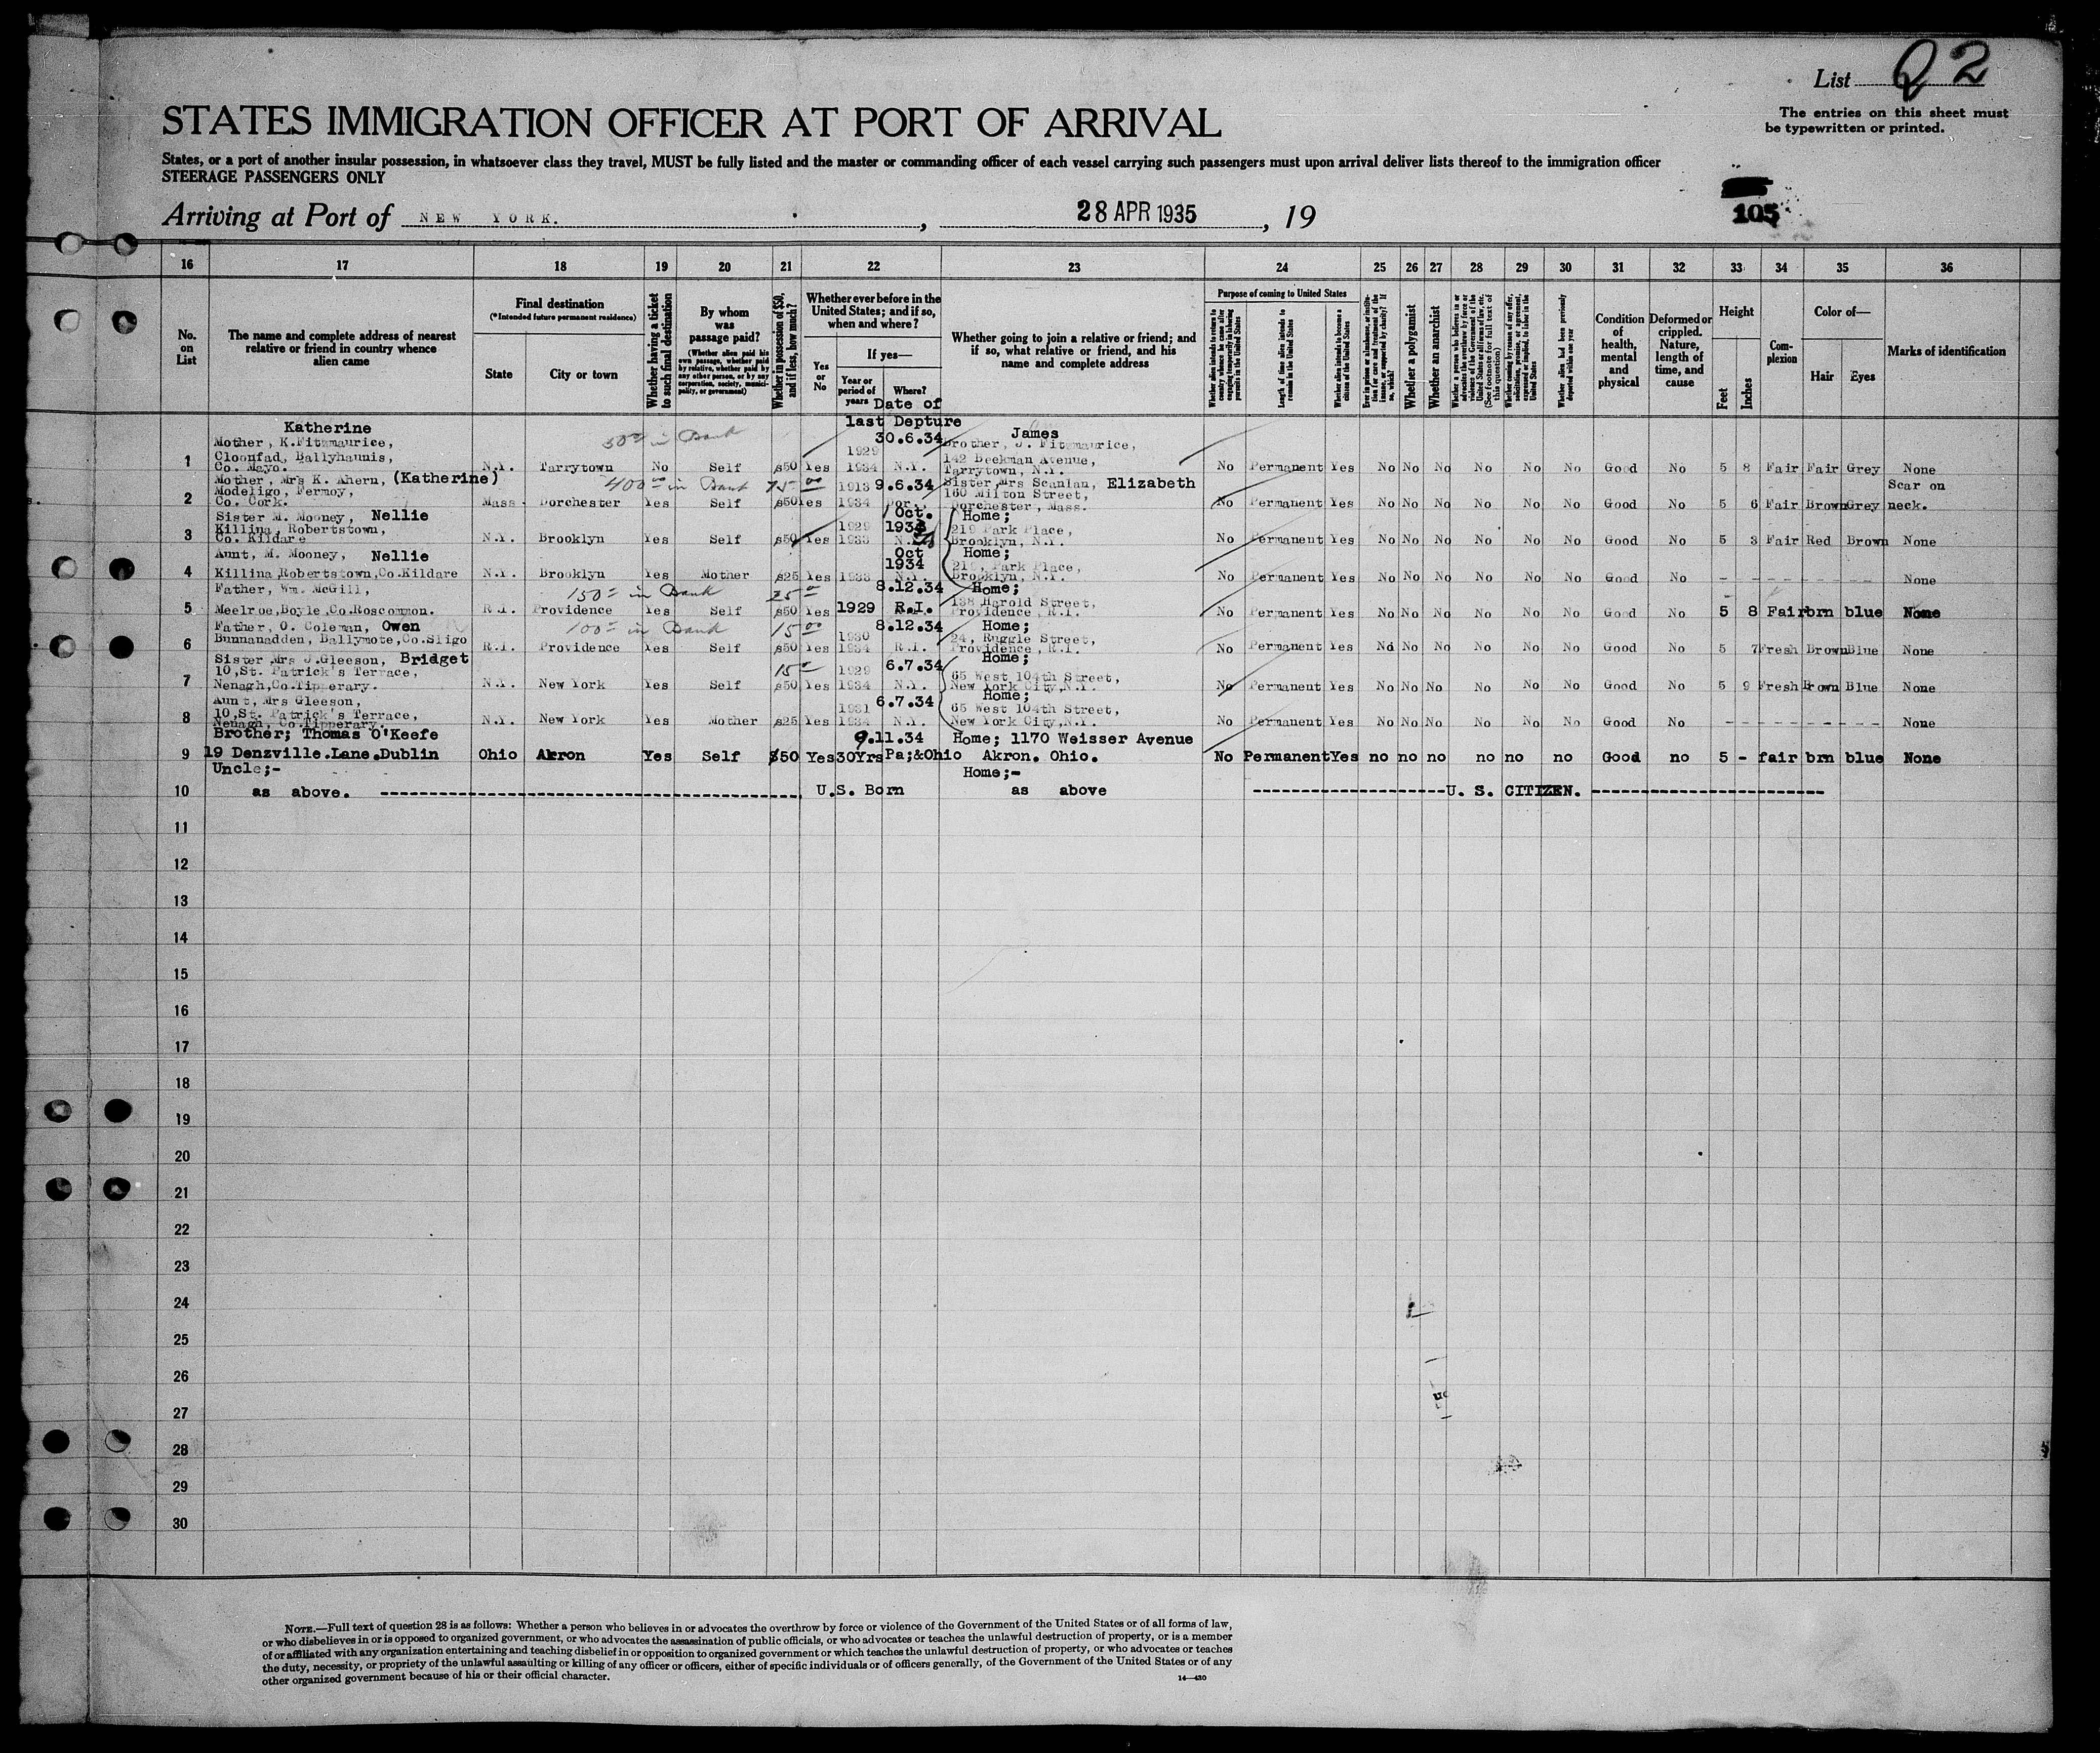 List Q2
The entries on this sheet must
be typewritten or printed.
STATES IMMIGRATION OFFICER AT PORT OF ARRIVAL
States, or a port of another insular possession, in whatsoever class they travel, MUST be fully listed and the master or commanding officer of each vessel carrying such passengers must upon arrival deliver lists thereof to the immigration officer
STEERAGE PASSENGERS ONLY
105
Arriving at Port of NEW YORK. , 28 APR 1935 , 19
16 17 18 19 20 21 22 23 24 25 26 27 28 29 30 31 32 33 34 35 36
No.
on
List
The name and complete address of nearest
relative or friend in country whence
alien came
Final destination
(*Intended future permanent residence)
State
City or town
Whether having a ticket
to such final destination
By whom
was
passage paid?
(Whether alien paid his
own passage, whether paid
by relative, whether paid by
any other person, or by any
corporation, society, munici-
pality, or government)
Whether in possession of $50,
and if less, how much?
Whether ever before in the
United States; and if so,
when and where?
Yes
or
No
If yes—
Year or
period of
years
Where?
Date of
last Depture
Whether going to join a relative or friend; and
if so, what relative or friend, and his
name and complete address
Purpose of coming to United States
Whether alien intends to return to
country whence he came after
engaging temporarily in laboring
pursuits in the United States
Length of time alien intends to
remain in the United States
Whether alien intends to become a
citizen of the United States
Whether a polygamist
Whether an anarchist
Whether alien had been previously
deported within one year
Condition
of
health,
mental
and
physical
Deformed or
crippled.
Nature,
length of
time, and
cause
Height
Feet
Inches
Com-
plexion
Color of—
Hair
Eyes
Marks of identification
Katherine
Mother, K.Fitzmaurice,
Cloonfad, Ballyhaunis,
Co. Mayo.
1 N.Y. Tarrytown No Self $50 Yes 1929 1934 30.6.34 N.Y.
James
Brother, J. Fitzmaurice,
142 Beekman Avenue,
Tarrytown, N.Y.
No Permanent Yes No No No No No No Good No 5 8 Fair Fair Grey None
50 in Bank
Mother, Mrs K. Ahern, (Katherine)
Modeligo, Fermoy,
Co. Cork.
400 in Bank 75 00
2 Mass Dorchester Yes Self $50 Yes 1913 1934 9.6.34 Dor.
Sister,Mrs Scanlan, Elizabeth
160 Milton Street,
Dorchester, Mass.
No Permanent Yes No No No No No No Good No 5 6 Fair Brown Grey Scar on
neck.
Sister M. Mooney, Nellie
Killina, Robertstown,
Co. Kildare
3 N.Y. Brooklyn Yes Self $50 Yes 1929 1933 Oct.
Home;
219 Park Place,
Brooklyn, N.Y.
No Permanent Yes No No No No No No Good No 5 3 Fair Red Brown None
Aunt, M. Mooney, Nellie
Killina,Robertstown,Co.Kildare
4 N.Y. Brooklyn Yes Mother $25 Yes 1933 Oct 1934 N.Y.
Home;
219, Park Place,
Brooklyn, N.Y.
No Permanent Yes No No No No No No Good No - - - - - - None
Father, Wm. McGill,
Meelroe,Boyle,Co.Roscommon.
150 in Bank 25
5 R.I. Providence Yes Self $50 Yes 1929 8.12.34 R.I.
Home;
138 Harold Street,
Providence, R.I.
No Permanent Yes No No No No No No Good No 5 8 Fair brn blue None
Father, O. Coleman, Owen
Bunnanadden, Ballymote,Co.Sligo
100 in Bank 15 00
6 R.I. Providence Yes Self $50 Yes 1930 1934 8.12.34 R.I.
Home;
24, Ruggle Street,
Providence, R.I.
No Permanent Yes No No No No No No Good No 5 7 Fresh Brown Blue None
Sister,Mrs J.Gleeson, Bridget
10,St. Patrick's Terrace,
Nenagh,Co.Tipperary.
15
7 N.Y. New York Yes Self $50 Yes 1929 1934 6.7.34 N.Y.
Home;
65 West 104th Street,
New York City,N.Y.
No Permanent Yes No No No No No No Good No 5 9 Fresh Brown Blue None
Aunt, Mrs Gleeson,
10,St. Patrick's Terrace,
Nenagh, Co.Tipperary.
8 N.Y. New York Yes Mother $25 Yes 1931 1934 6.7.34 N.Y.
Home;
65 West 104th Street,
New York City,N.Y.
No Permanent Yes No No No No No No Good No - - - - - - None
Brother; Thomas O'Keefe
9 19 Denzville.Lane.Dublin Ohio Akron Yes Self $50 Yes 30Yrs 9.11.34 Pa;&Ohio
Home; 1170 Weisser Avenue
Akron. Ohio.
No Permanent Yes no no no no no no Good no 5 - fair brn blue None
Uncle;-
10 as above. ---------- U.S. Born
Home;-
as above ---------- U. S. CITIZEN. ----------
11
12
13
14
15
16
17
18
19
20
21
22
23
24
25
26
27
28
29
30
NOTE.—Full text of question 28 is as follows: Whether a person who believes in or advocates the overthrow by force or violence of the Government of the United States or of all forms of law,
or who disbelieves in or is opposed to organized government, or who advocates the assassination of public officials, or who advocates or teaches the unlawful destruction of property, or is a member
of or affiliated with any organization entertaining and teaching disbelief in or opposition to organized government or which teaches the unlawful destruction of property, or who advocates or teaches
the duty, necessity, or propriety of the unlawful assaulting or killing of any officer or officers, either of specific individuals or of officers generally, of the Government of the United States or of any
other organized government because of his or their official character.
14—430